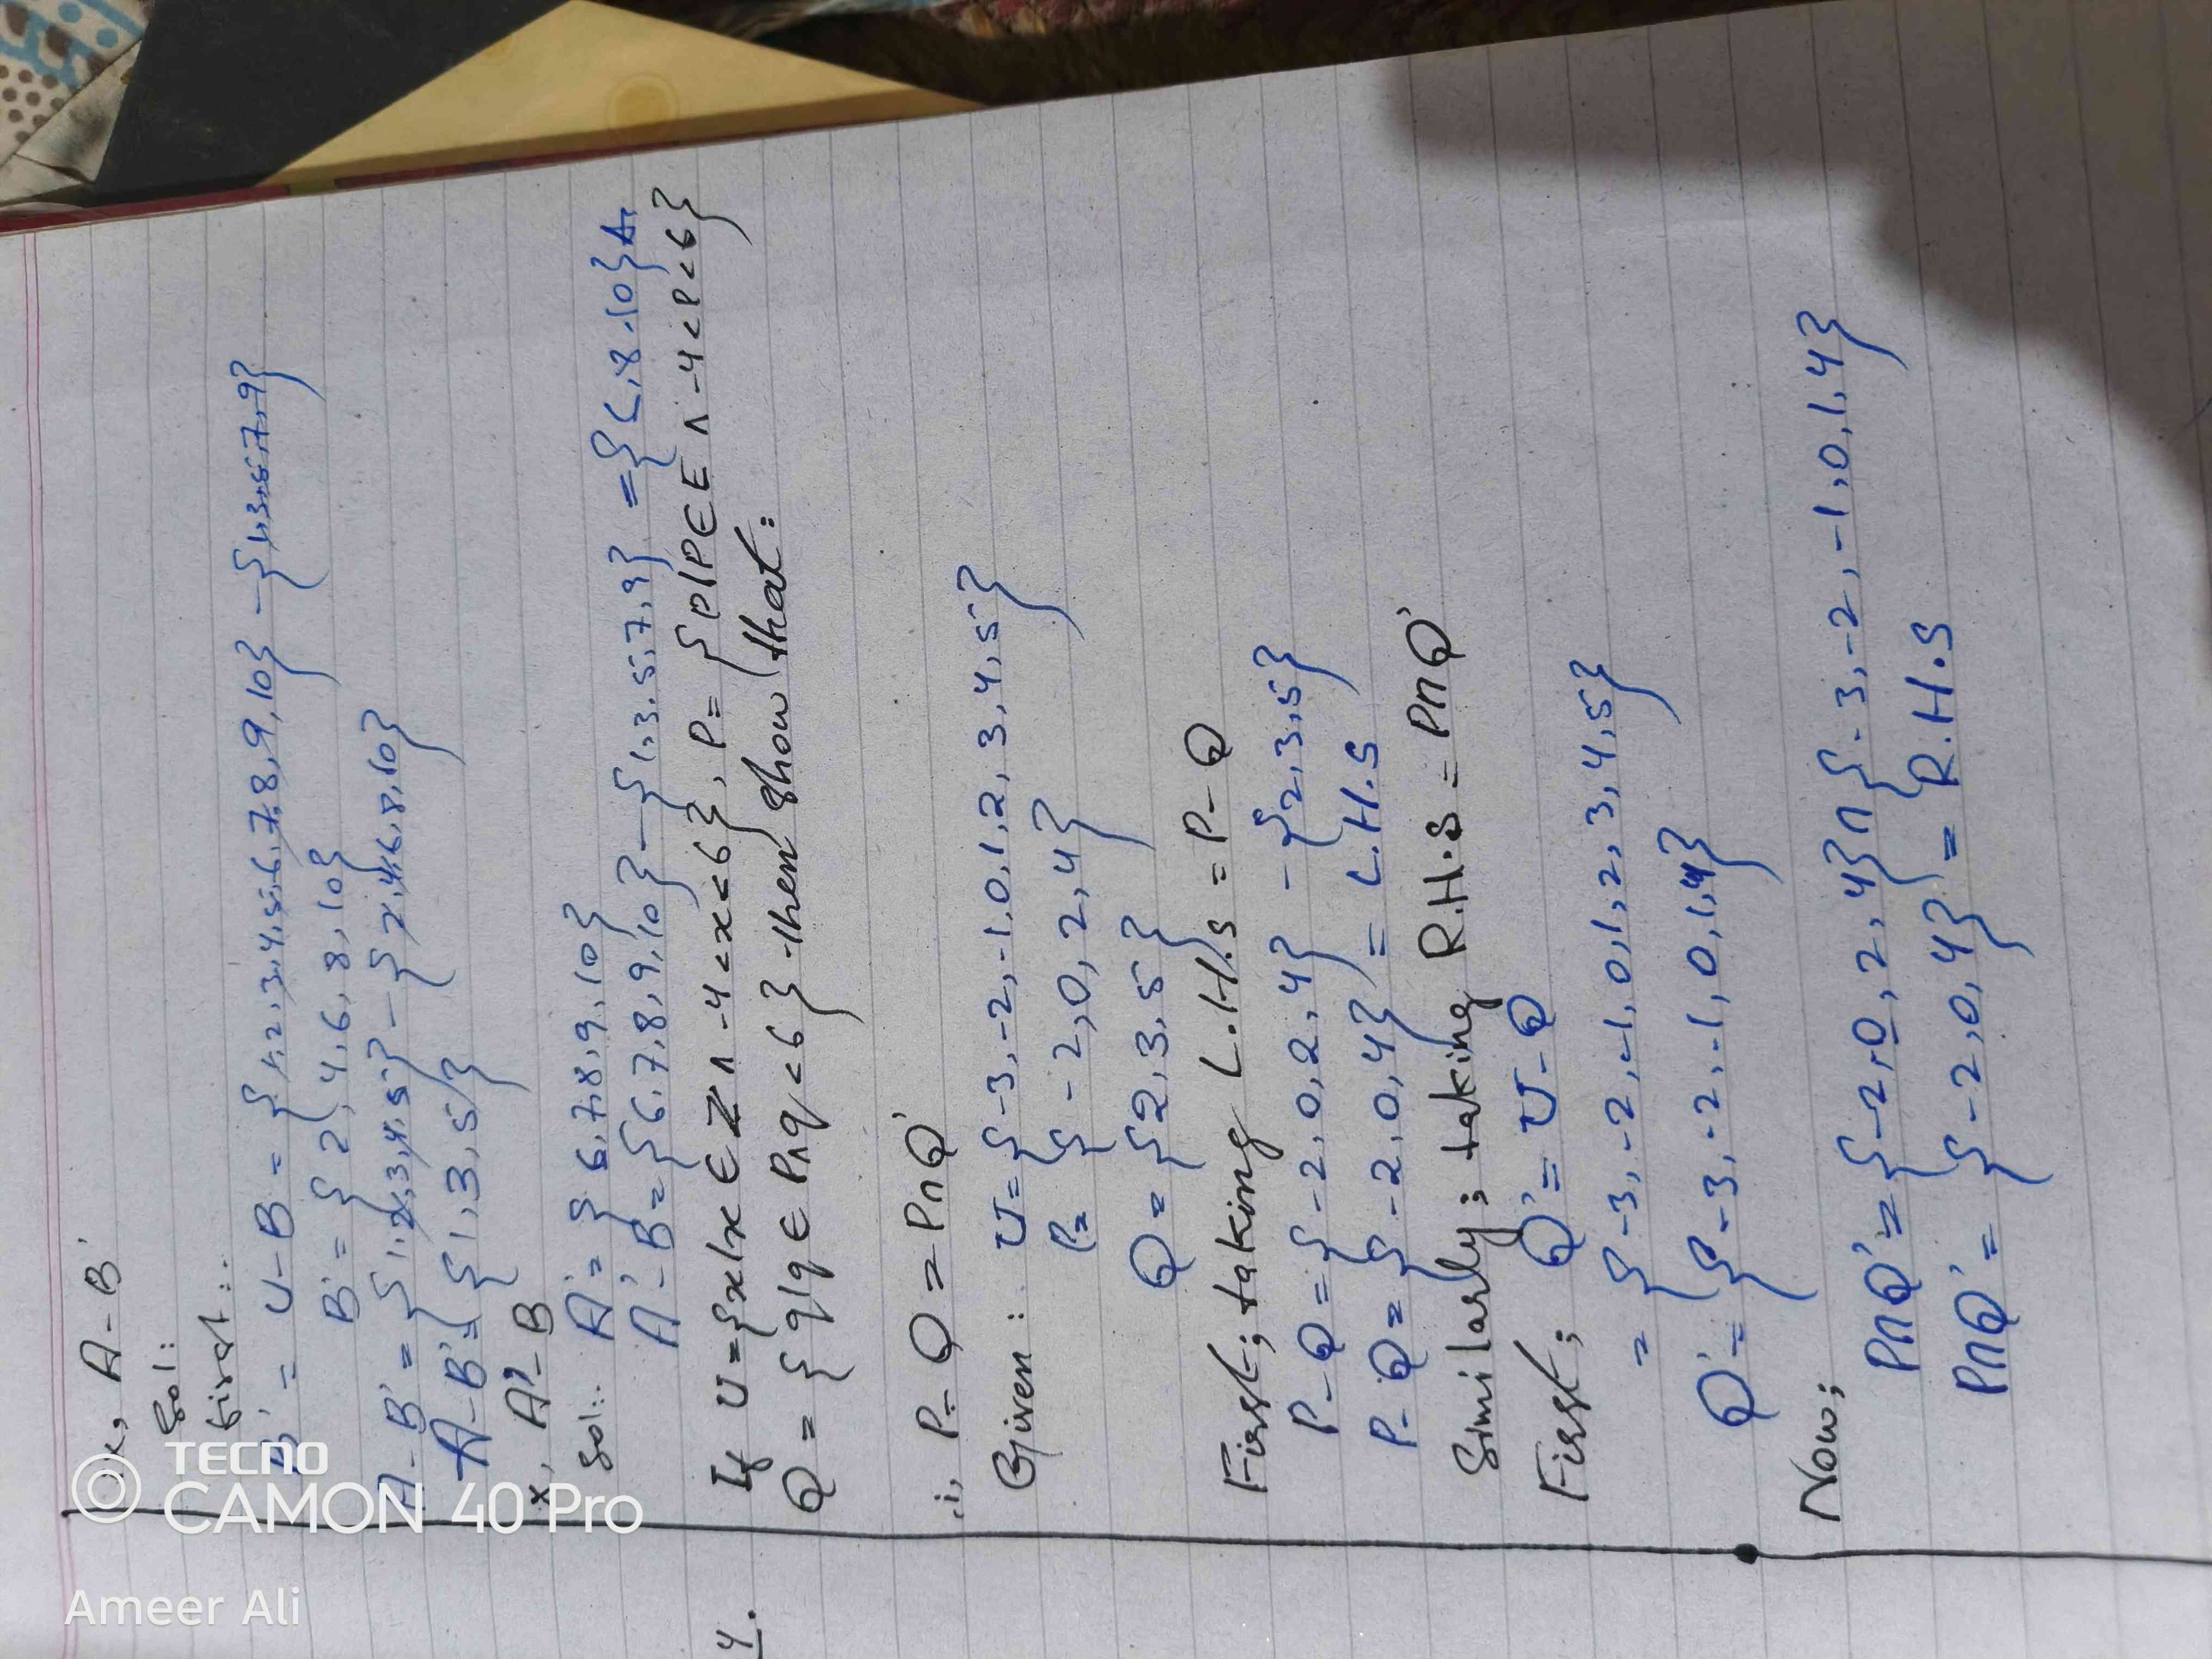 ix, A - B'
Sol:
first:-
B' = U - B = {1,2,3,4,5,6,7,8,9,10} - {1,3,5,7,9}
B' = {2,4,6,8,10}
A - B' = {1,2,3,4,5} - {2,4,6,8,10}
A - B' = {1,3,5}
x, A' - B
Sol:-
A' = {6,7,8,9,10}
A' - B = {6,7,8,9,10} - {1,3,5,7,9} = {6,8,10}
4. If U = {x|x ∈ Z ∧ -4 < x < 6}, P = {p|p ∈ E ∧ -4 < p < 6}
Q = {q|q ∈ P ∧ q < 6} then show that:
i, P - Q = P ∩ Q'
Given: U = {-3,-2,-1,0,1,2,3,4,5}
P = {-2,0,2,4}
Q = {2,3,5}
First; taking L.H.S = P - Q
P - Q = {-2,0,2,4} - {2,3,5}
P - Q = {-2,0,4} = L.H.S
Similarly; taking R.H.S = P ∩ Q'
First; Q' = U - Q
= {-3,-2,-1,0,1,2,3,4,5}
Q' = {-3,-2,-1,0,1,4}
Now;
P ∩ Q' = {-2,0,2,4} ∩ {-3,-2,-1,0,1,4}
P ∩ Q' = {-2,0,4} = R.H.S
TECNO
CAMON 40 Pro
Ameer Ali